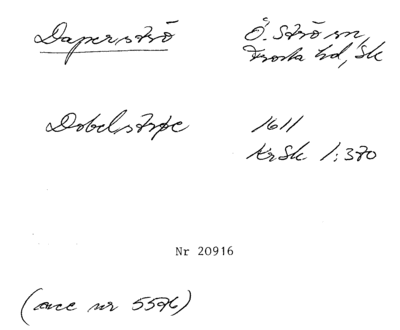 Daperströ Ö. Ström,
Frosta hd, Sk
Dobelstrøe 1611
KrSk 1:370
Nr 20916
(acc nr 5576)